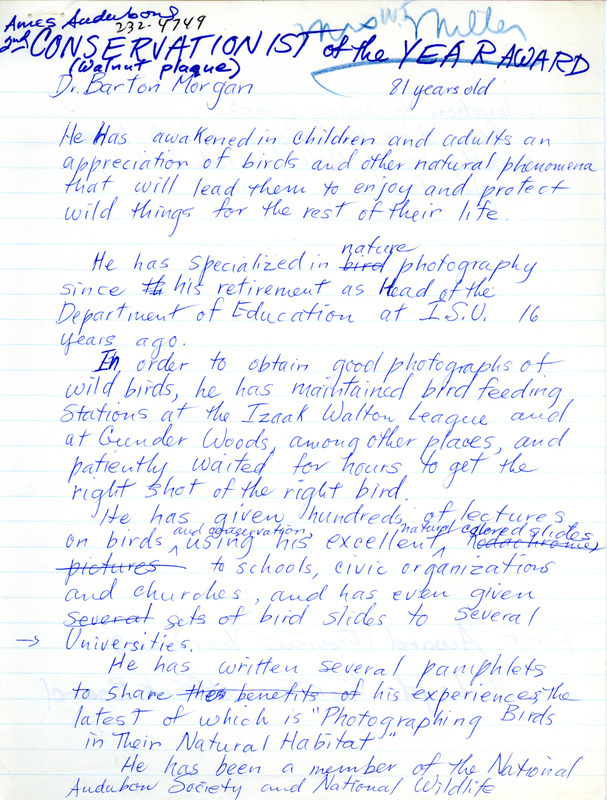 Ames Audubon
232-4749
Mrs W. F. Miller
2nd CONSERVATIONIST of the YEAR AWARD
(walnut plaque)
Dr. Barton Morgan 81 years old
He Has awakened in children and adults an
appreciation of birds and other natural phenomena
that will lead them to enjoy and protect
wild things for the rest of their life.
nature
He has specialized in bird photography
since th his retirement as Head of the
Department of Education at I.S.U. 16
years ago.
In order to obtain good photographs of
wild birds, he has maintained bird feeding
Stations at the Izaak Walton League and
at Gunder Woods, among other places, and
patiently waited for hours to get the
right shot of the right bird.
He has given hundreds of lectures
and conservation, natural colored slides
on birds using his excellent Kodachromes
pictures to schools, civic organizations
and churches, and has even given
several sets of bird slides to several
→ Universities.
He has written several pamphlets
to share the benefits of his experiences, the
latest of which is "Photographing Birds
in Their Natural Habitat"
He has been a member of the National
Audubon Society and National Wildlife